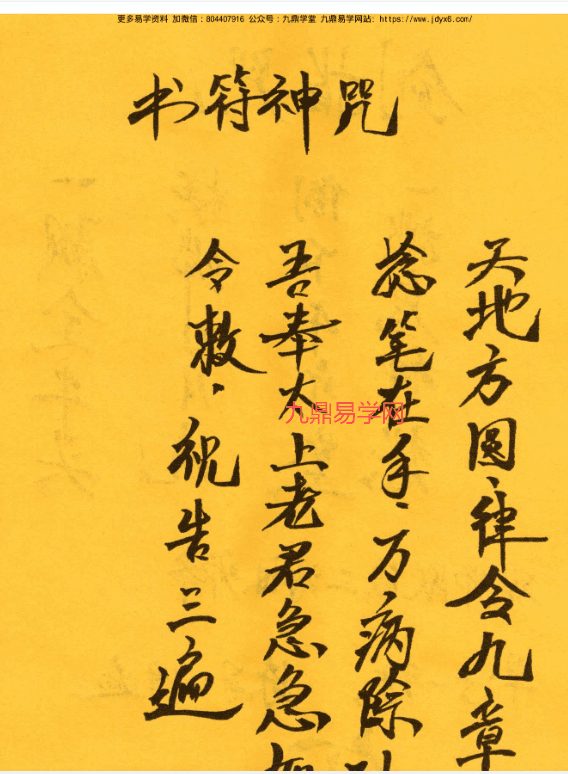 更多易学资料 加微信：804407916 公众号：九鼎学堂 九鼎易学网站：https://www.jdyx6.com/
书符神咒
天地方圆、律令九章
捻笔在手、万病除
吾奉大上老君急急如
令敕、祝告三遍
九鼎易学网